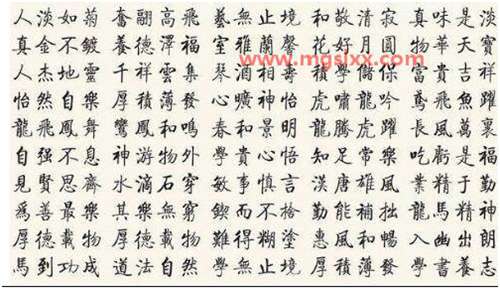 人淡如菊 奮翮高飛 藝無止境 和敬清寂 真味是淡
真金不鍍 養德澤福 室雅蘭馨 花好月圓 物華天寶
www.mgslxx.com
人杰地靈 千祥雲集 酒相 學儲 富貴吉祥
怡然自樂 厚積薄發 心曠神怡 虎嘯龍吟 鳶飛魚躍
龍飛鳳舞 鸞鳳和鳴 春和景明 龍騰虎躍 長風萬裏
自强不息 神游物外 學貴心悟 知足常樂 吃虧是福
見賢思齊 水滴石穿 敏事慎言 漢唐雄風 業精于勤
爲善最樂 其樂無窮 鍥而不捨 勤能補拙 龍馬精神
厚德載物 難得糊塗 惠風和暢 入幽出朗
馬到功成 道法自然 學無止境 厚積薄發 學書養志